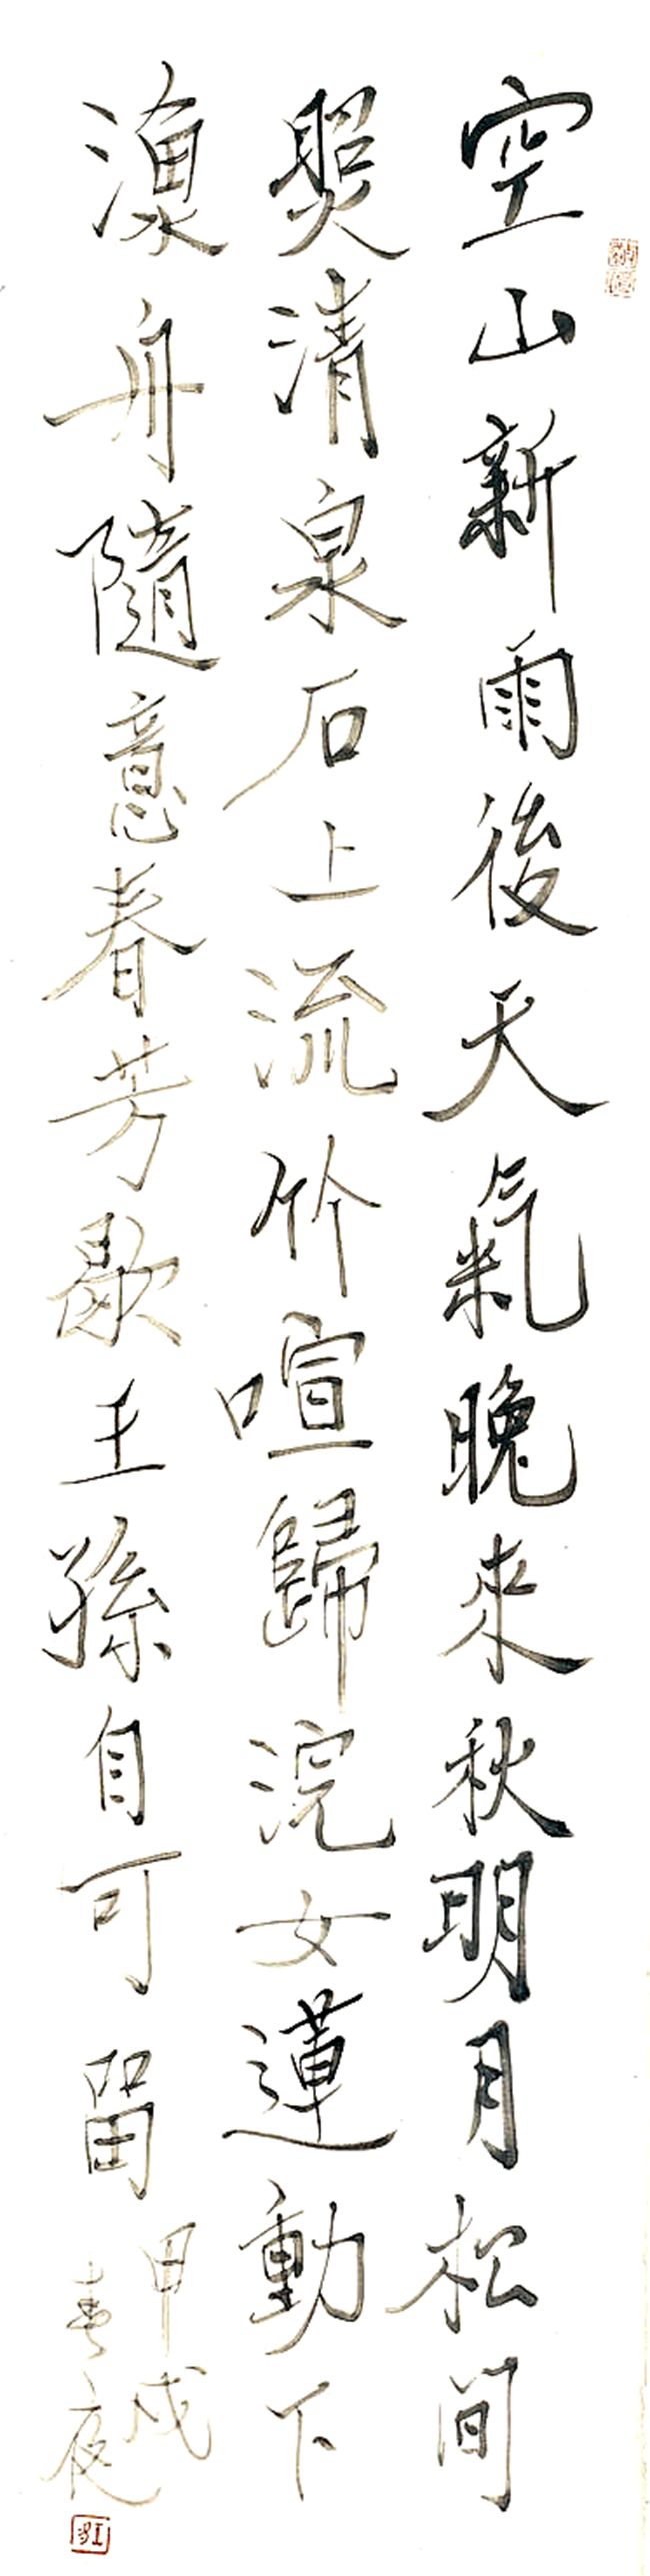 空山新雨後天氣晚來秋明月松間
照清泉石上流竹喧歸浣女蓮動下
漁舟隨意春芳歇王孫自可留
甲戌
春夜